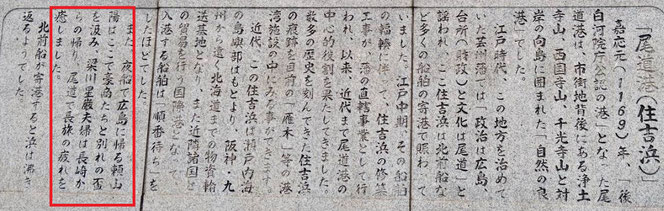 「尾道港(住吉浜)」
嘉応元(1169)年、「後
白河院庁公認の港」となった尾
道港は、市街地背後にある浄土
寺山、西国寺山、千光寺山と対
岸の向島に囲まれた「自然の良
港」でした。
江戸時代、この地方を治めて
いた芸州藩では「政治は広島、
台所(財政)と文化は尾道」と
謳われ、ここ住吉浜は北前船な
ど多くの船舶の寄港で賑わって
いました。江戸中期、その船舶
の輻輳に伴って、住吉浜の修築
工事が、藩の直轄事業として行
われ、以来、近代まで尾道港の
中心的役割を果たしてきました。
数多の歴史を刻んできた住吉浜
の痕跡を目前の「雁木」等の港
湾施設の中にみる事ができます。
近代、この住吉浜は瀬戸内海
の島嶼部はもとより、阪神・九
州から遠く北海道までの物資輸
送基地となり、また近隣諸国と
の貿易を行う国際港となって
入港する船舶は「順番待ち」を
したほどでした。
また、夜船で広島に帰る頼山
陽はここで豪商たちと別れの盃
を汲み、梁川星巌夫婦は長崎か
らの帰り、尾道で長旅の疲れを
癒しました。
北前船が寄港すると浜は沸き
返るようでした。